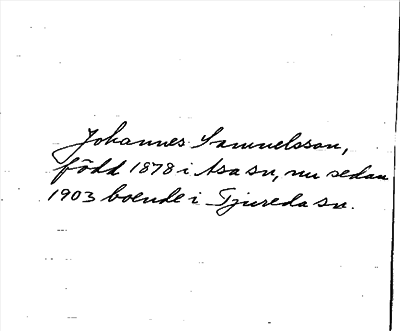 Johannes Samuelsson,
född 1878 i Asa sn, nu sedan
1903 boende i Tjureda sn.